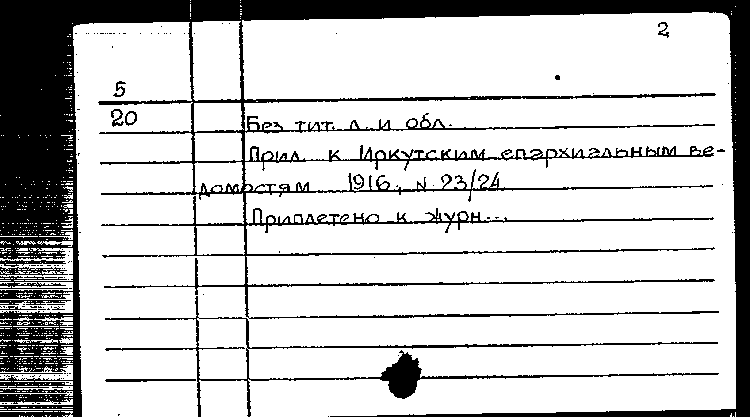 2
5
20
Без тит. л. и обл.
Прил. к Иркутским епархиальным ве-
домостям 1916, N 23/24
Приплетено к журн...